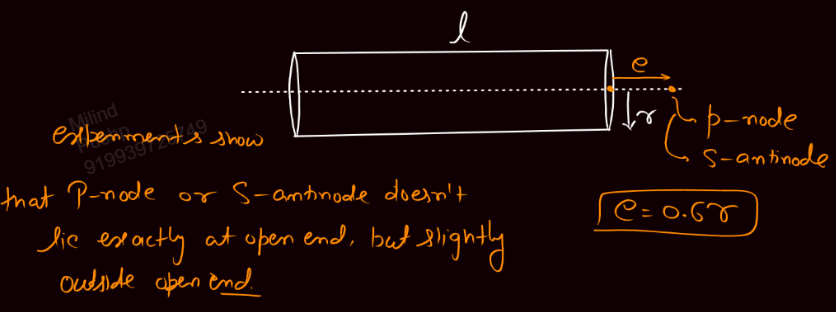 l
e
r
p-node
S-antinode
Milind
919939725749
experiments show
that P-node or S-antinode doesn't
lie exactly at open end, but slightly
outside open end.
e = 0.6r